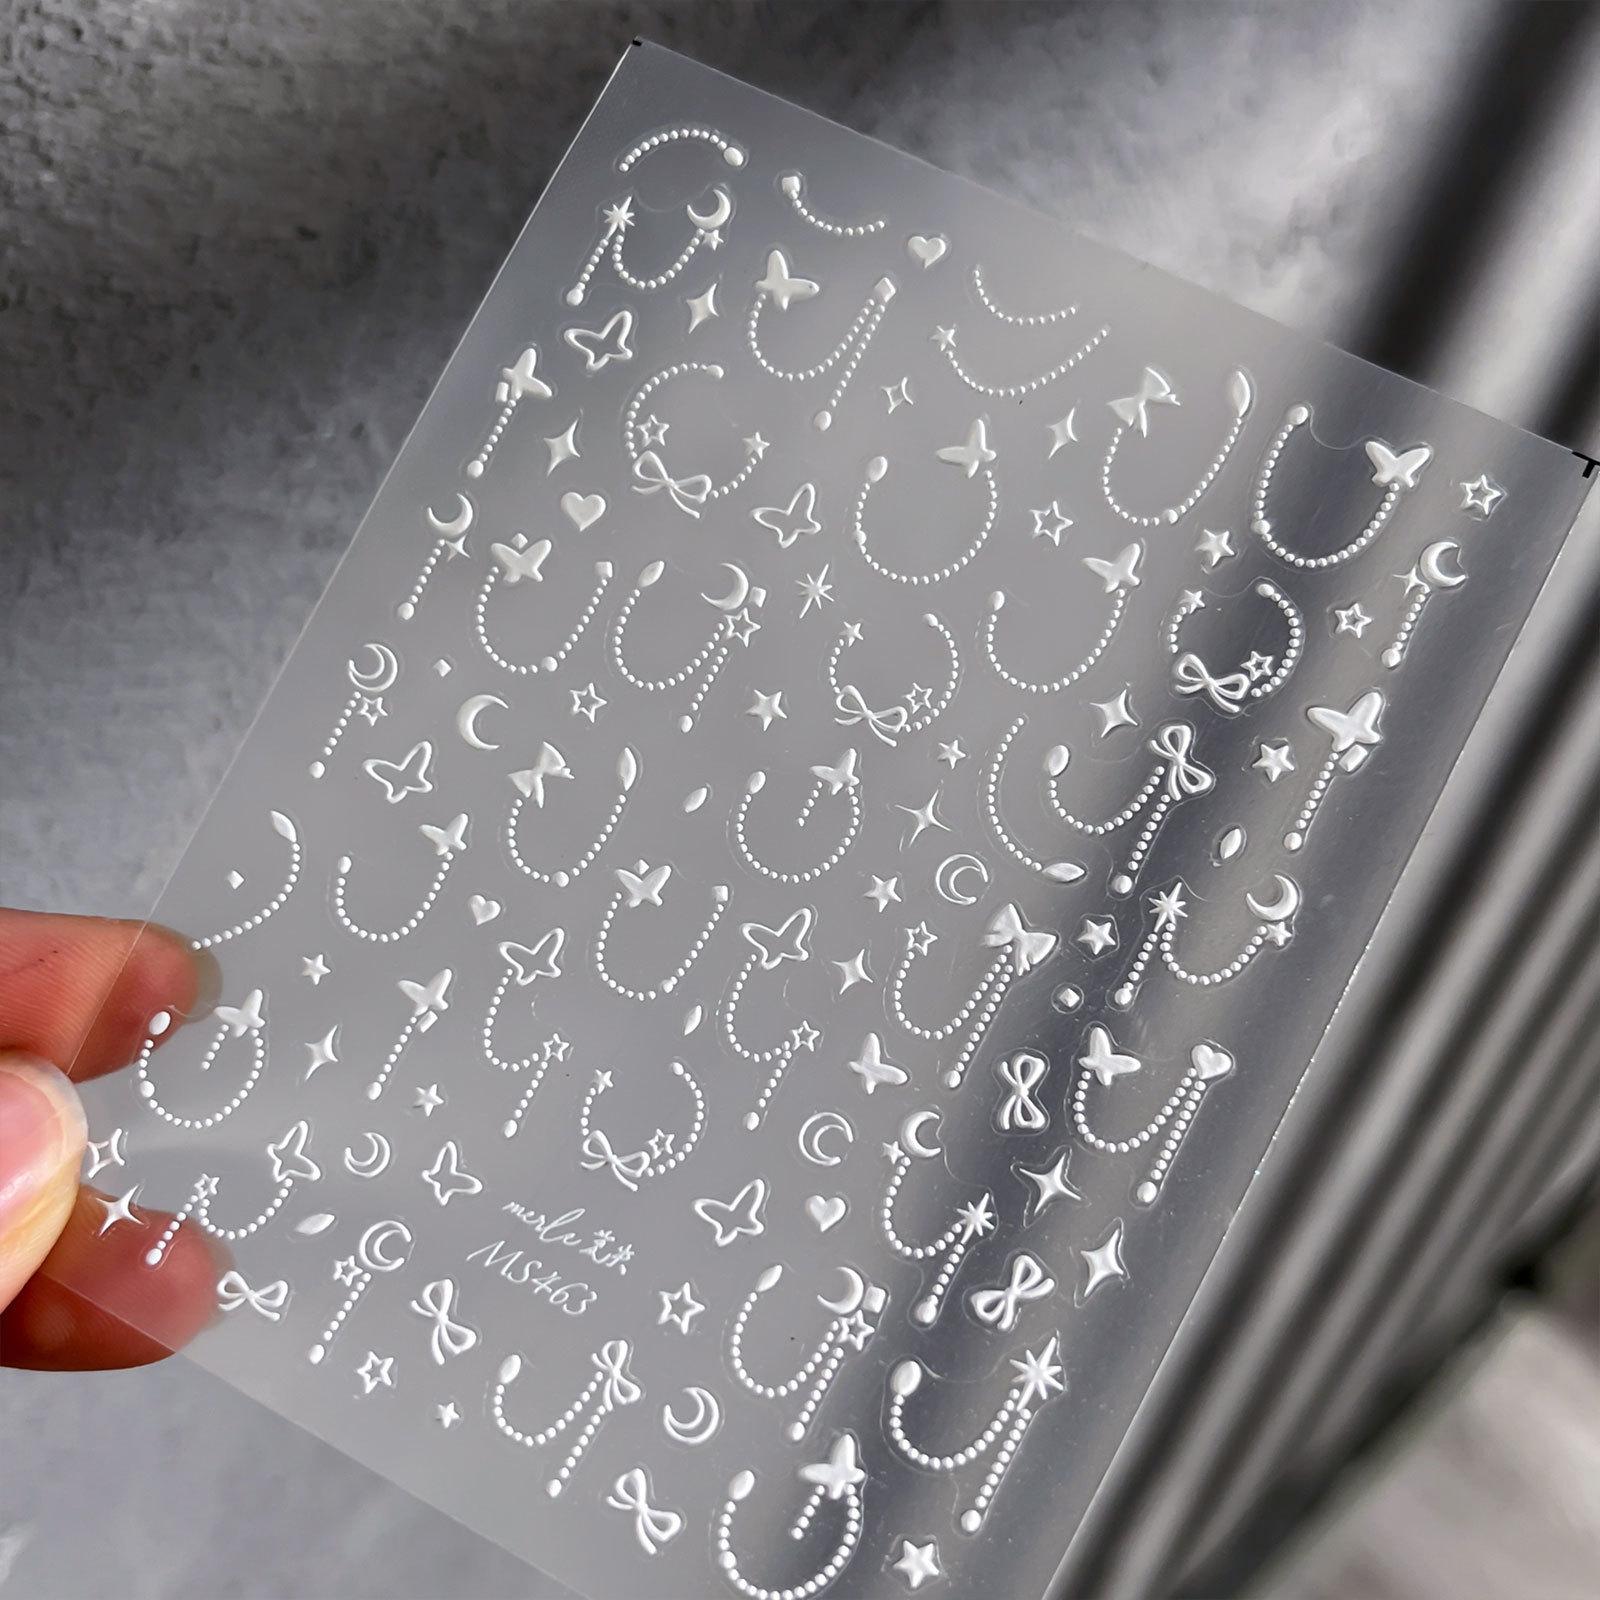 merle 芝未
MS463